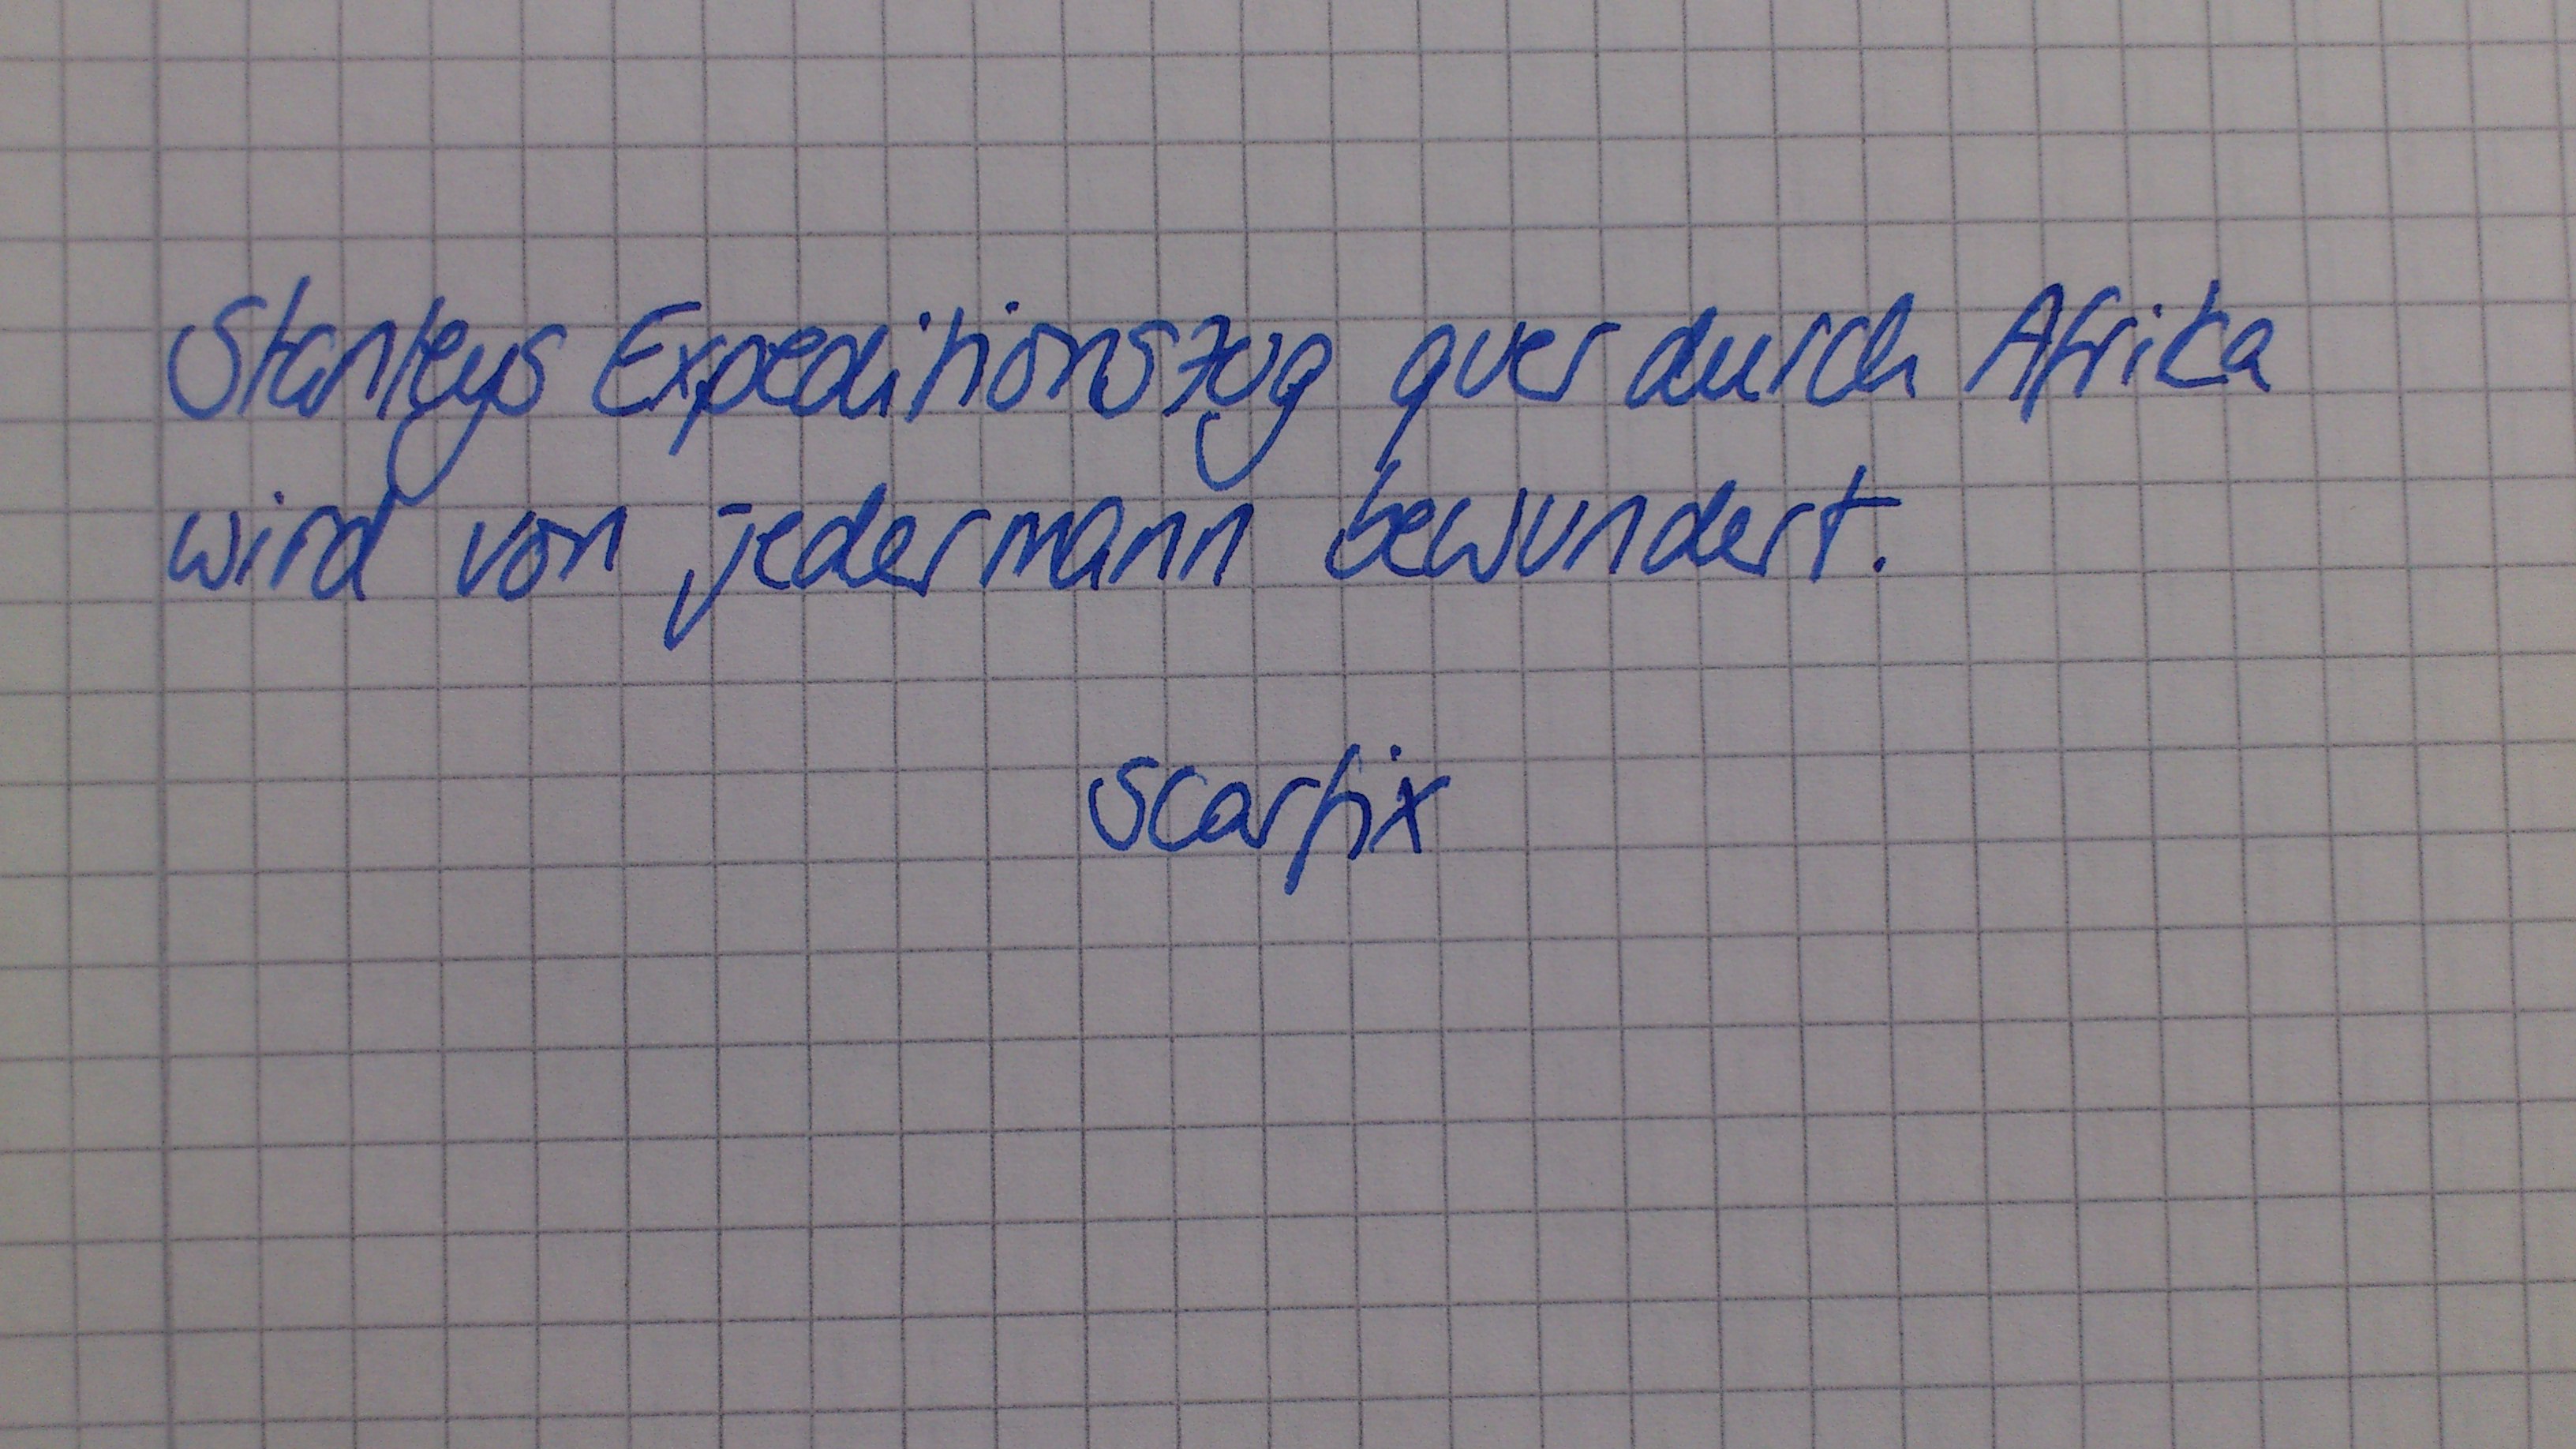 Stanleys Expeditionszug quer durch Afrika
wird von jedermann bewundert.
scarfix